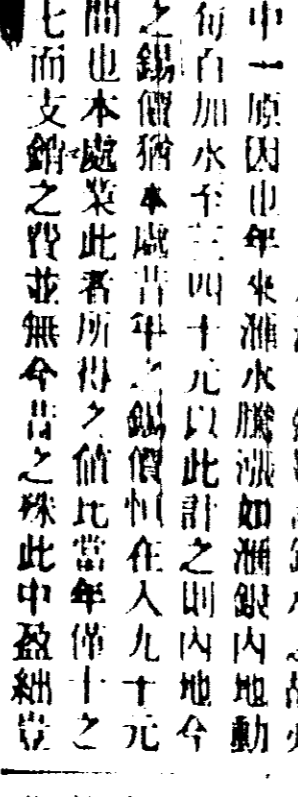 中一原因由年來滙水騰漲如滙銀內地動
每百加水至三四十元以此計之則內地今
之錫價猶本處昔年之錫價恒在八九十元
間也本處業此者所得之値比當年僅十之
七而支銷之費並無今昔之殊此中盈絀豈